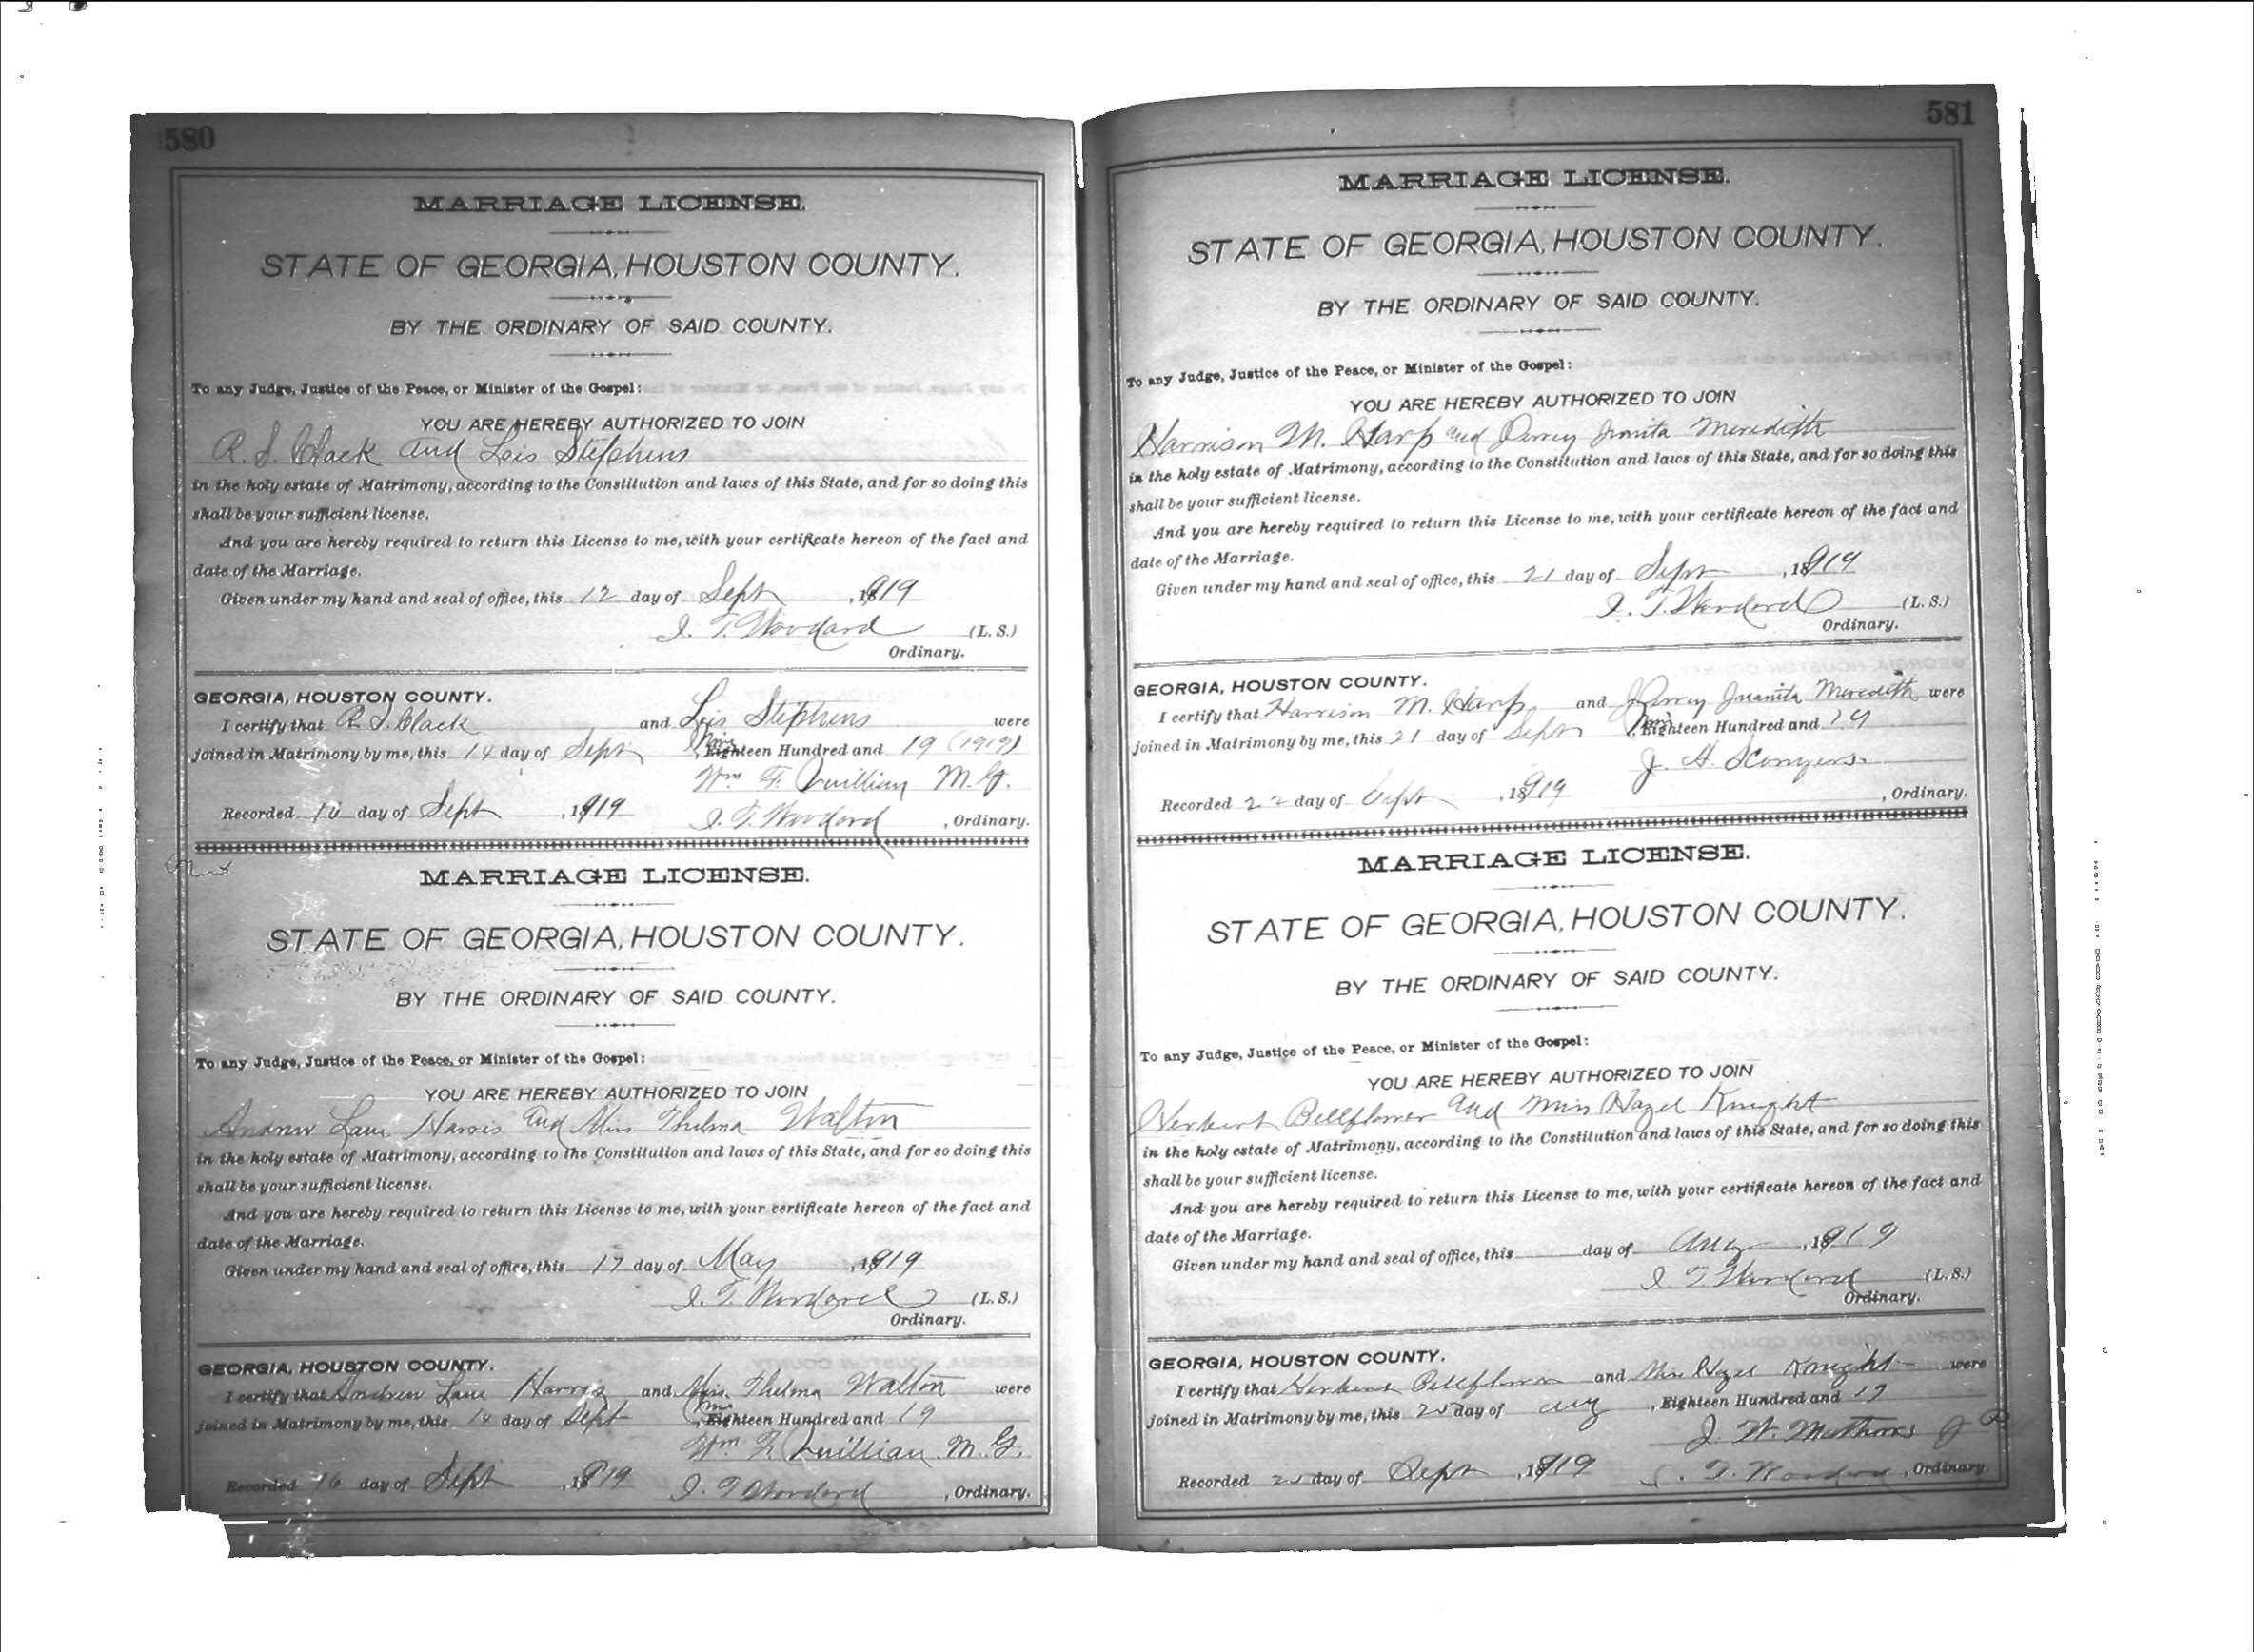 580
MARRIAGE LICENSE.
STATE OF GEORGIA, HOUSTON COUNTY.
BY THE ORDINARY OF SAID COUNTY.
To any Judge, Justice of the Peace, or Minister of the Gospel:
YOU ARE HEREBY AUTHORIZED TO JOIN
R. S. Black and Lois Stephens
in the holy estate of Matrimony, according to the Constitution and laws of this State, and for so doing this
shall be your sufficient license.
And you are hereby required to return this License to me, with your certificate hereon of the fact and
date of the Marriage.
Given under my hand and seal of office, this 12 day of Sept, 1919
I. T. Woodard (L. S.)
Ordinary.
GEORGIA, HOUSTON COUNTY.
I certify that R. S. Black and Lois Stephens were
joined in Matrimony by me, this 14 day of Sept, Eighteen Hundred and 19 (1919)
Wm F. Quillian M. G.
Recorded 16 day of Sept, 1919 I. T. Woodard, Ordinary.
MARRIAGE LICENSE.
STATE OF GEORGIA, HOUSTON COUNTY.
BY THE ORDINARY OF SAID COUNTY.
To any Judge, Justice of the Peace, or Minister of the Gospel:
YOU ARE HEREBY AUTHORIZED TO JOIN
Andrew Lane Harris and Miss Thelma Walton
in the holy estate of Matrimony, according to the Constitution and laws of this State, and for so doing this
shall be your sufficient license.
And you are hereby required to return this License to me, with your certificate hereon of the fact and
date of the Marriage.
Given under my hand and seal of office, this 17 day of May, 1919
I. T. Woodard (L. S.)
Ordinary.
GEORGIA, HOUSTON COUNTY.
I certify that Andrew Lane Harris and Miss Thelma Walton were
joined in Matrimony by me, this 14 day of Sept, Eighteen Hundred and 19
Wm F. Quillian M. G.
Recorded 16 day of Sept, 1919 I. T. Woodard, Ordinary.
581
MARRIAGE LICENSE.
STATE OF GEORGIA, HOUSTON COUNTY.
BY THE ORDINARY OF SAID COUNTY.
To any Judge, Justice of the Peace, or Minister of the Gospel:
YOU ARE HEREBY AUTHORIZED TO JOIN
Harrison M. Harp and Juanita Meredith
in the holy estate of Matrimony, according to the Constitution and laws of this State, and for so doing this
shall be your sufficient license.
And you are hereby required to return this License to me, with your certificate hereon of the fact and
date of the Marriage.
Given under my hand and seal of office, this 21 day of Sept, 1919
I. T. Woodard (L. S.)
Ordinary.
GEORGIA, HOUSTON COUNTY.
I certify that Harrison M. Harp and Juanita Meredith were
joined in Matrimony by me, this 21 day of Sept, Eighteen Hundred and 19
J. H. Sconyers
Recorded 22 day of Sept, 1919, Ordinary.
MARRIAGE LICENSE.
STATE OF GEORGIA, HOUSTON COUNTY.
BY THE ORDINARY OF SAID COUNTY.
To any Judge, Justice of the Peace, or Minister of the Gospel:
YOU ARE HEREBY AUTHORIZED TO JOIN
Herbert Bellflower and Miss Hazel Knight
in the holy estate of Matrimony, according to the Constitution and laws of this State, and for so doing this
shall be your sufficient license.
And you are hereby required to return this License to me, with your certificate hereon of the fact and
date of the Marriage.
Given under my hand and seal of office, this day of Aug, 1919
I. T. Woodard (L. S.)
Ordinary.
GEORGIA, HOUSTON COUNTY.
I certify that Herbert Bellflower and Miss Hazel Knight were
joined in Matrimony by me, this 25 day of Aug, Eighteen Hundred and 19
J. W. Mathews J P
Recorded 25 day of Sept, 1919 I. T. Woodard, Ordinary.